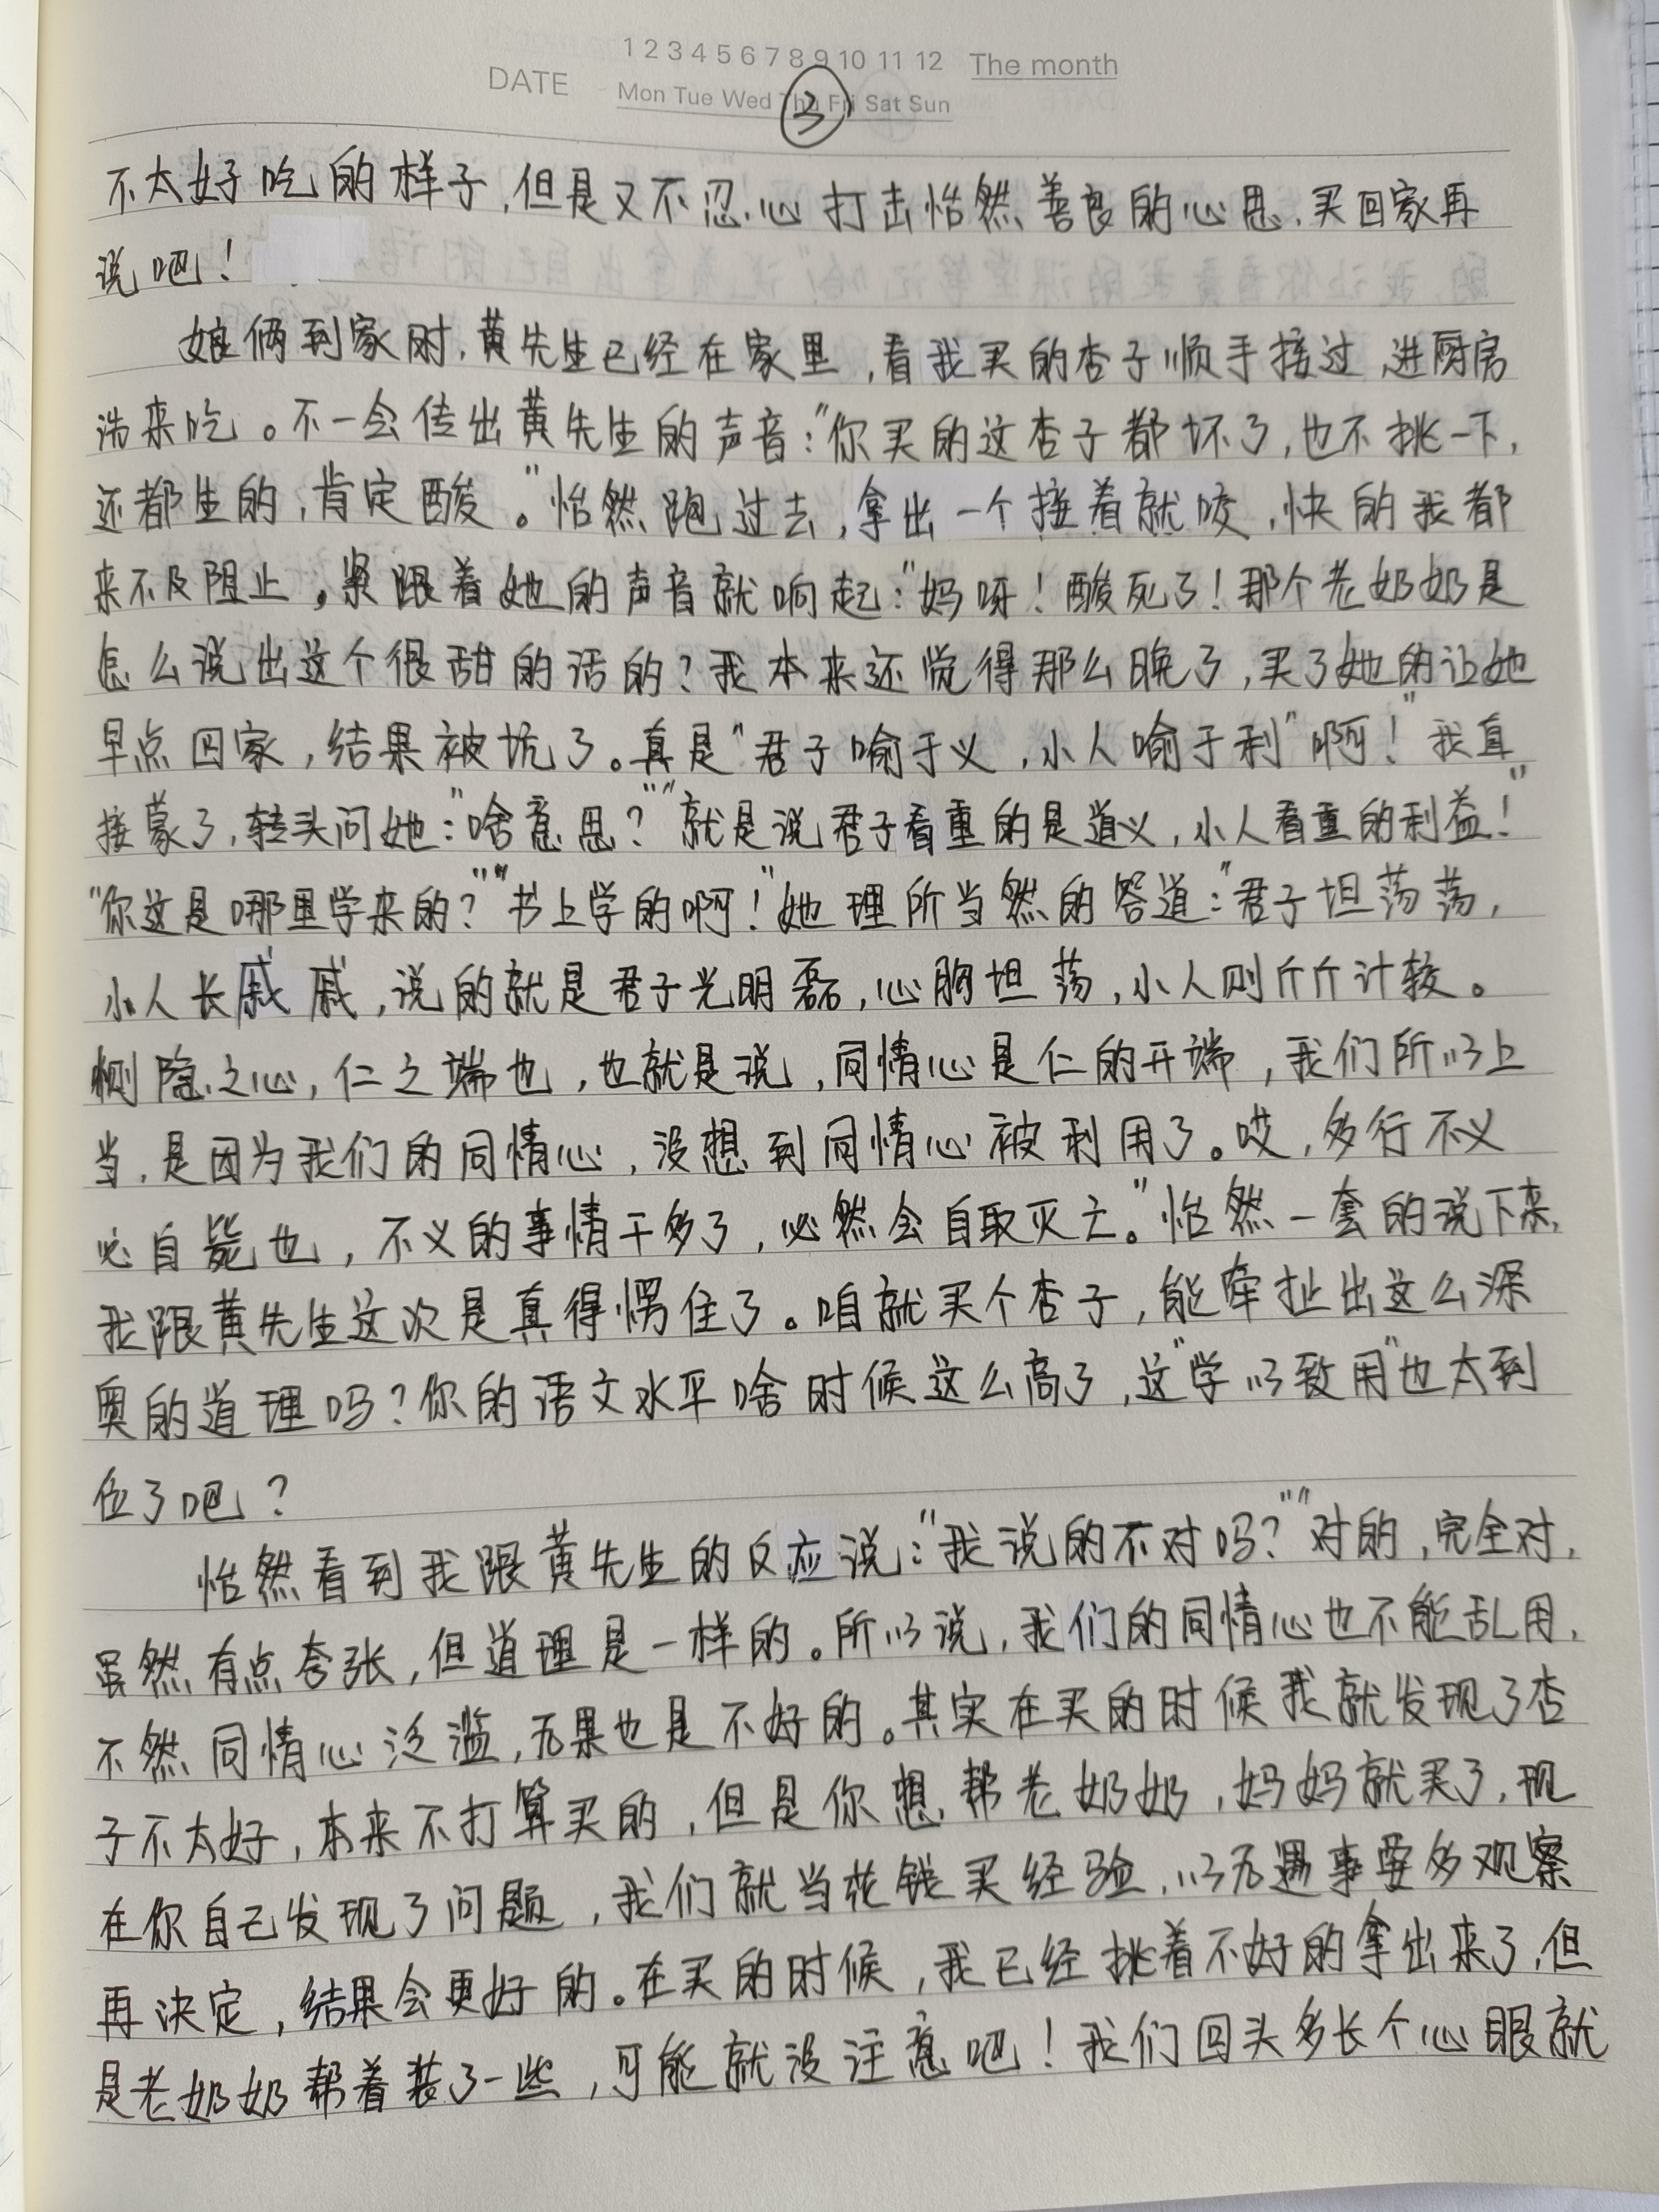 1 2 3 4 5 6 7 8 9 10 11 12 The month
DATE Mon Tue Wed Thu Fri Sat Sun
③
不太好吃的样子,但是又不忍心打击怡然善良的心思,买回家再
说吧!
娘俩到家时,黄先生已经在家里,看我买的杏子顺手接过,进厨房
洗来吃。不一会传出黄先生的声音:"你买的这杏子都坏了,也不挑一下,
还都生的,肯定酸。"怡然跑过去,拿出一个接着就咬,快的我都
来不及阻止,紧跟着她的声音就响起:"妈呀!酸死了!那个老奶奶是
怎么说出这个很甜的话的?我本来还觉得那么晚了,买了她的让她
早点回家,结果被坑了。真是"君子喻于义,小人喻于利"啊!"我直
接蒙了,转头问她:"啥意思?""就是说君子看重的是道义,小人看重的利益!"
"你这是哪里学来的?""书上学的啊!"她理所当然的答道:"君子坦荡荡,
小人长戚戚,说的就是君子光明磊,心胸坦荡,小人则斤斤计较。
恻隐之心,仁之端也,也就是说,同情心是仁的开端,我们所以上
当,是因为我们的同情心,没想到同情心被利用了。哎,多行不义
必自毙也,不义的事情干多了,必然会自取灭亡。"怡然一套的说下来,
我跟黄先生这次是真得愣住了。咱就买个杏子,能牵扯出这么深
奥的道理吗?你的语文水平啥时候这么高了,这"学以致用"也太到
位了吧?
怡然看到我跟黄先生的反应说:"我说的不对吗?""对的,完全对,
虽然有点夸张,但道理是一样的。所以说,我们的同情心也不能乱用,
不然同情心泛滥,后果也是不好的。其实在买的时候我就发现了杏
子不太好,本来不打算买的,但是你想帮老奶奶,妈妈就买了,现
在你自己发现了问题,我们就当花钱买经验,以后遇事要多观察
再决定,结果会更好的。在买的时候,我已经挑着不好的拿出来了,但
是老奶奶帮着装了一些,可能就没注意吧!我们回头多长个心眼就